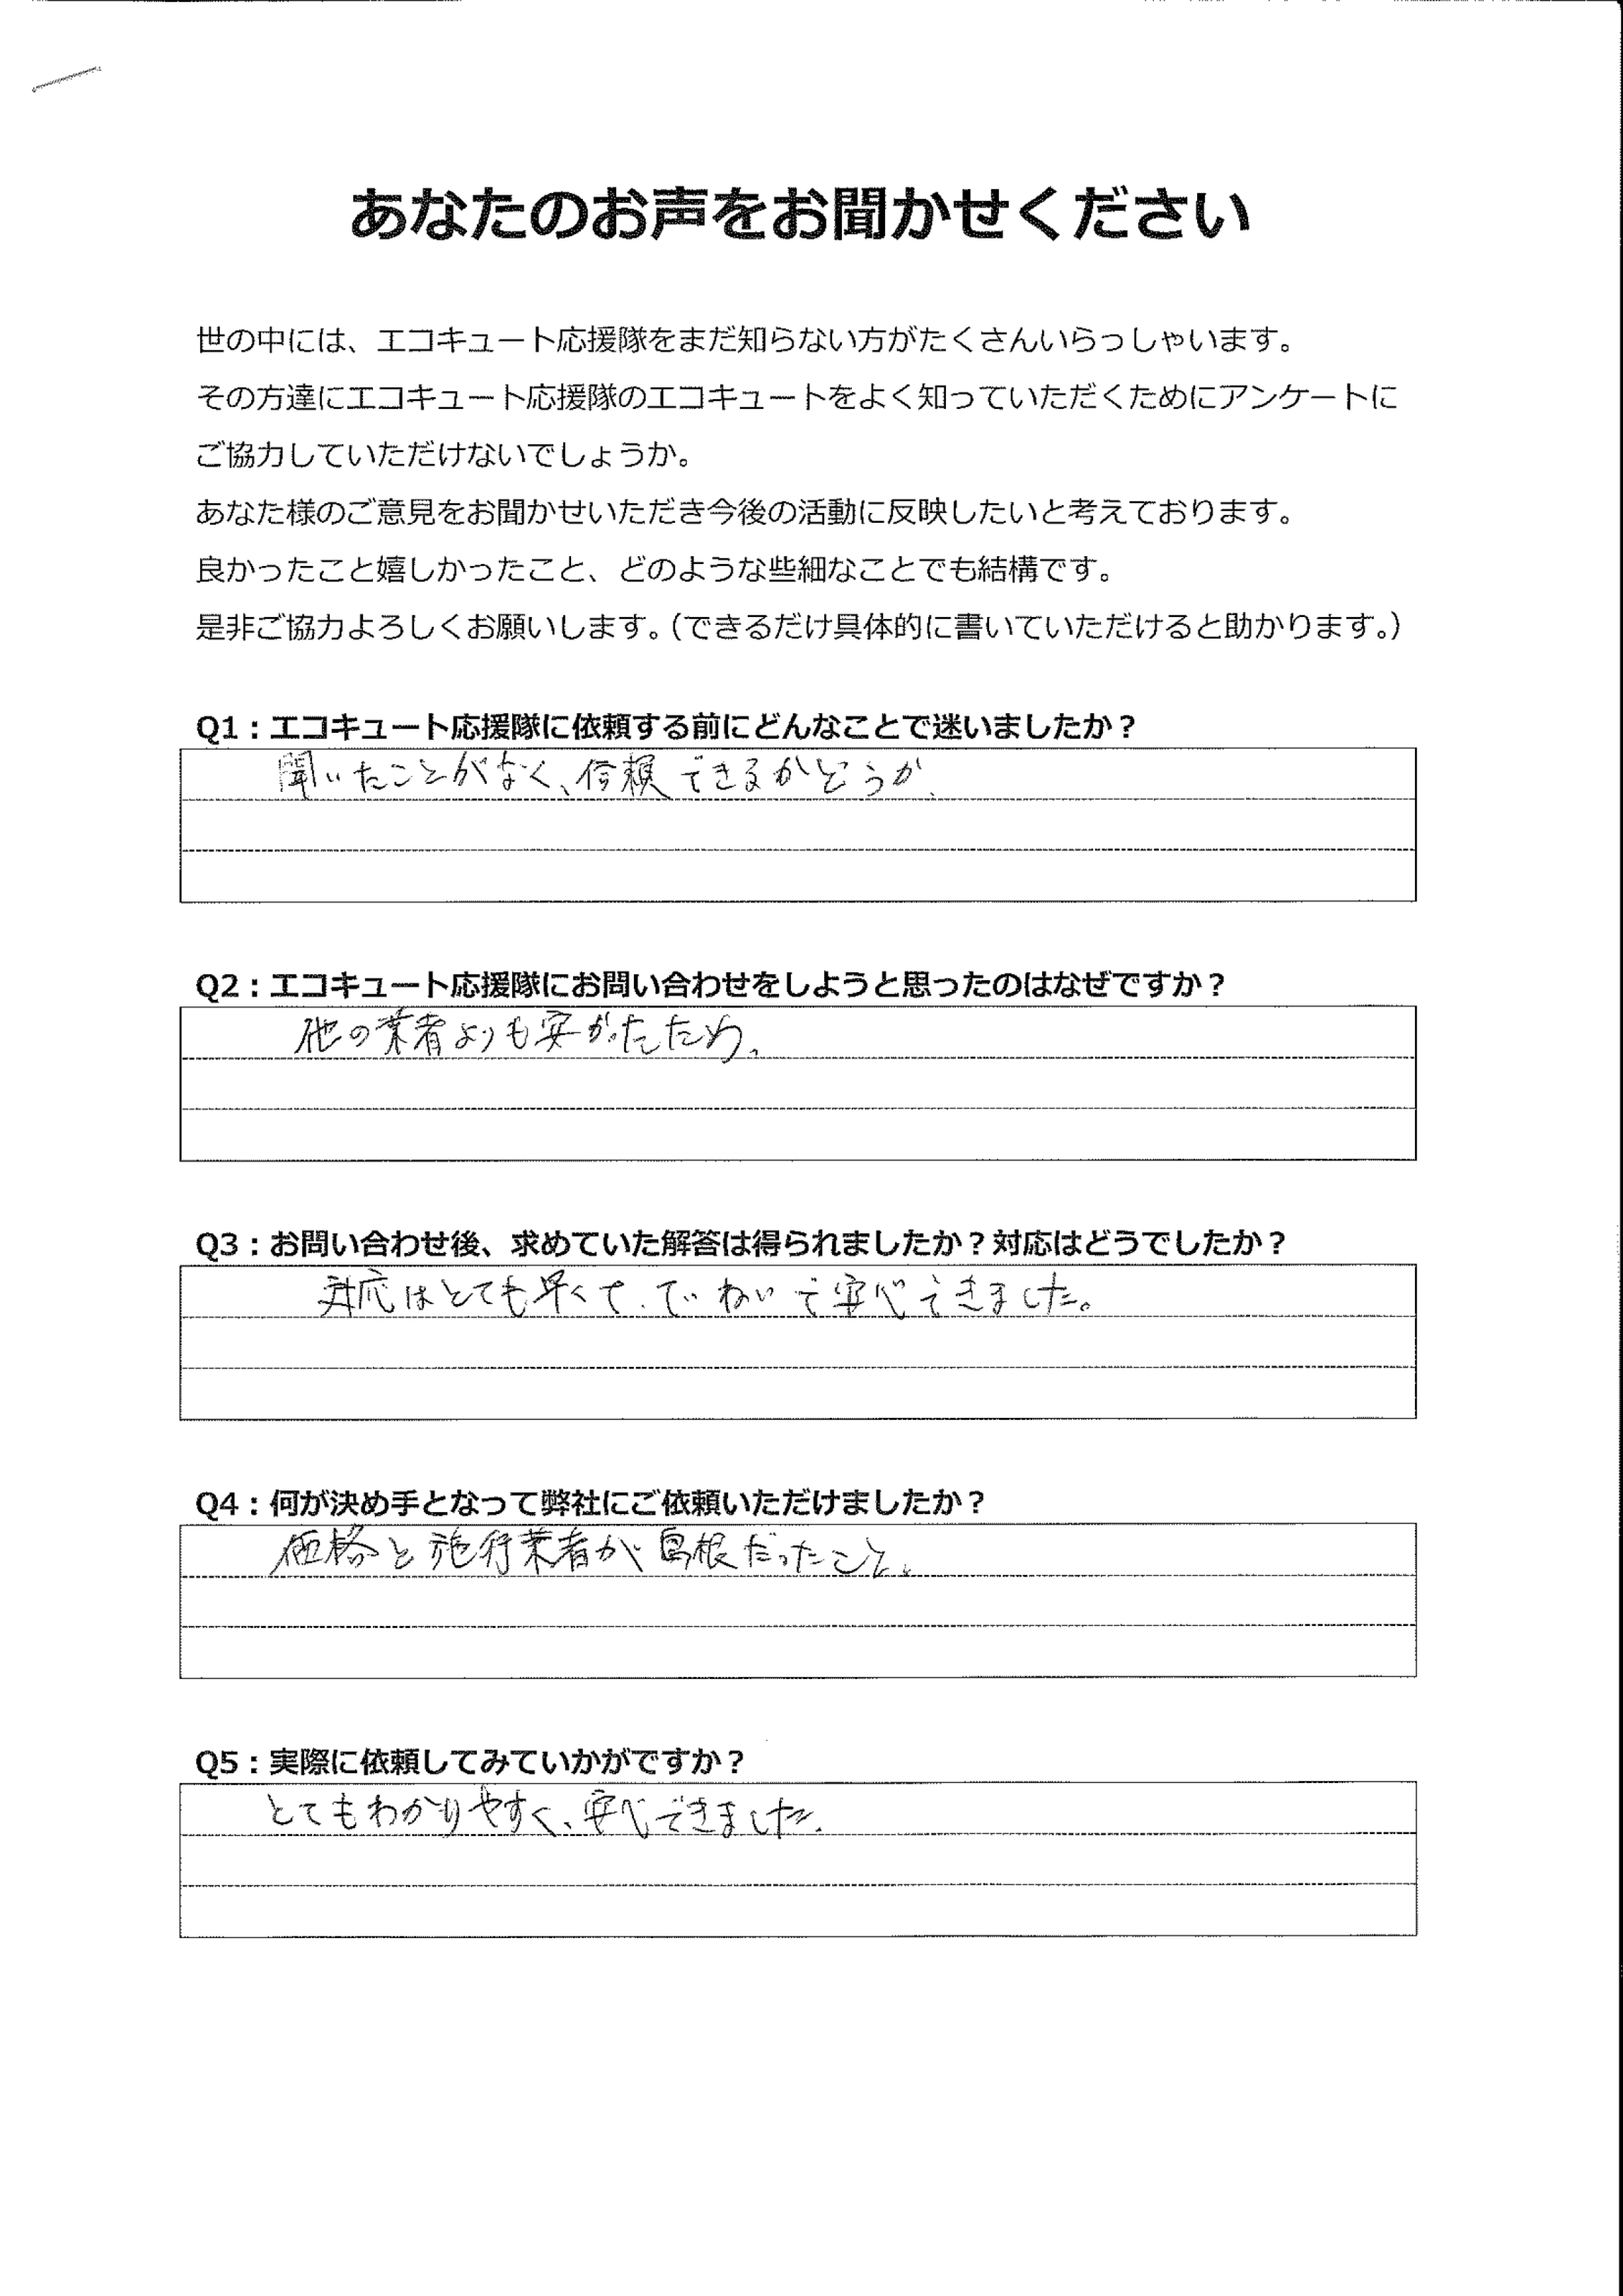 あなたのお声をお聞かせください
世の中には、エコキュート応援隊をまだ知らない方がたくさんいらっしゃいます。
その方達にエコキュート応援隊のエコキュートをよく知っていただくためにアンケートに
ご協力していただけないでしょうか。
あなた様のご意見をお聞かせいただき今後の活動に反映したいと考えております。
良かったこと嬉しかったこと、どのような些細なことでも結構です。
是非ご協力よろしくお願いします。（できるだけ具体的に書いていただけると助かります。）
Q1：エコキュート応援隊に依頼する前にどんなことで迷いましたか？
聞いたことがなく、信頼できるかどうか、
Q2：エコキュート応援隊にお問い合わせをしようと思ったのはなぜですか？
他の業者よりも安かったため。
Q3：お問い合わせ後、求めていた解答は得られましたか？対応はどうでしたか？
対応はとても早くて、ていねいで安心できました。
Q4：何が決め手となって弊社にご依頼いただけましたか？
価格と施行業者が島根だったこと。
Q5：実際に依頼してみていかがですか？
とてもわかりやすく、安心できました。